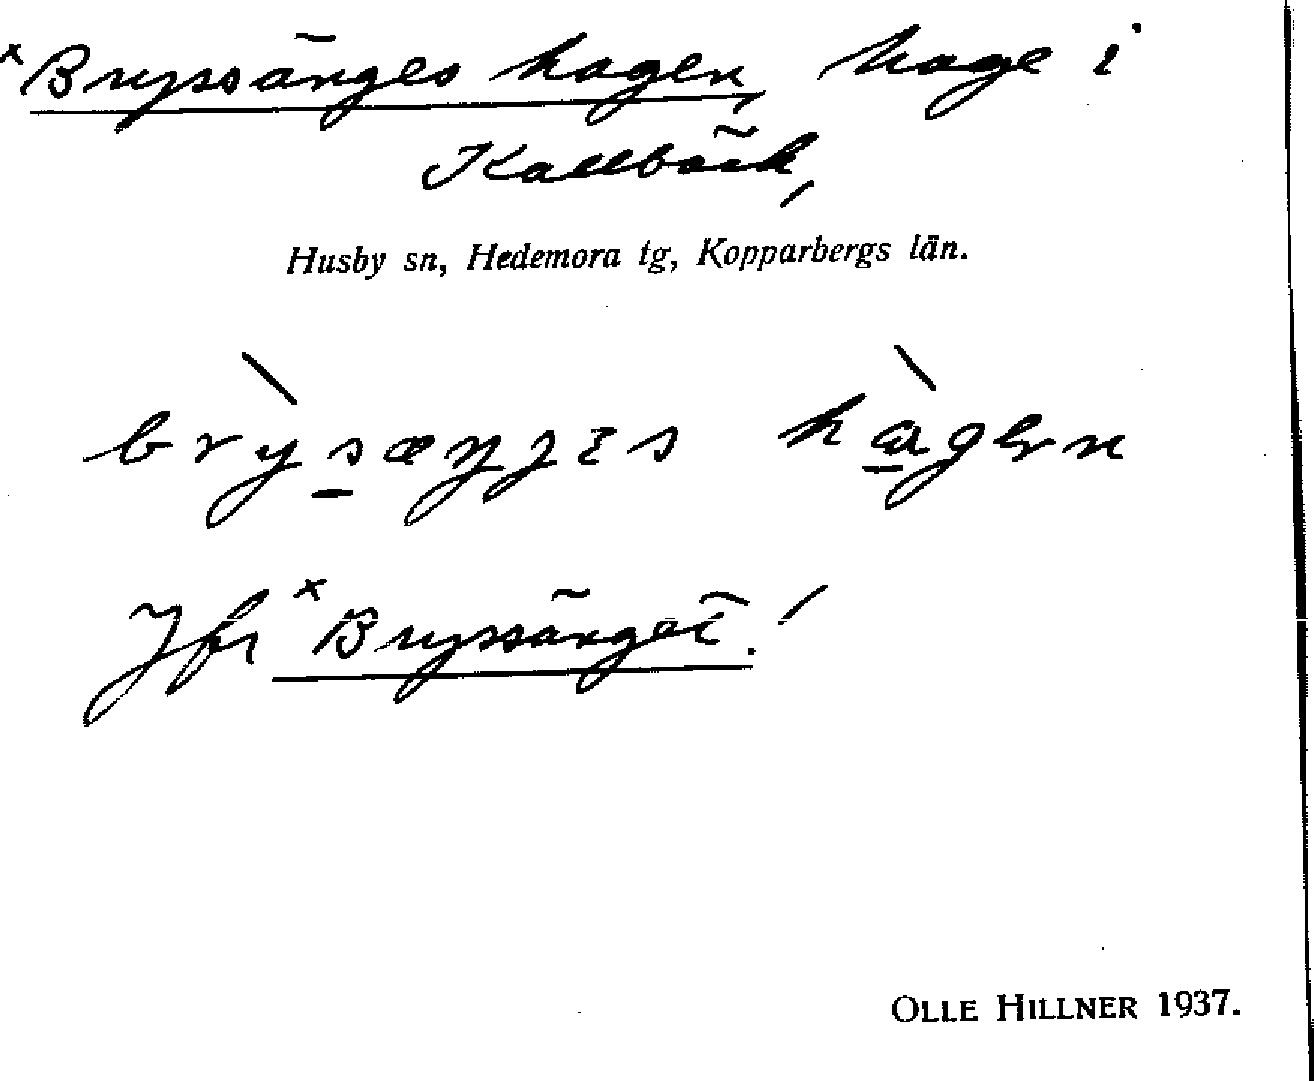 ×Bryssänges hagen, hage i
Kallbäck,
Husby sn, Hedemora tg, Kopparbergs län.
hàgen
Jfr ×Bryssänget.
OLLE HILLNER 1937.